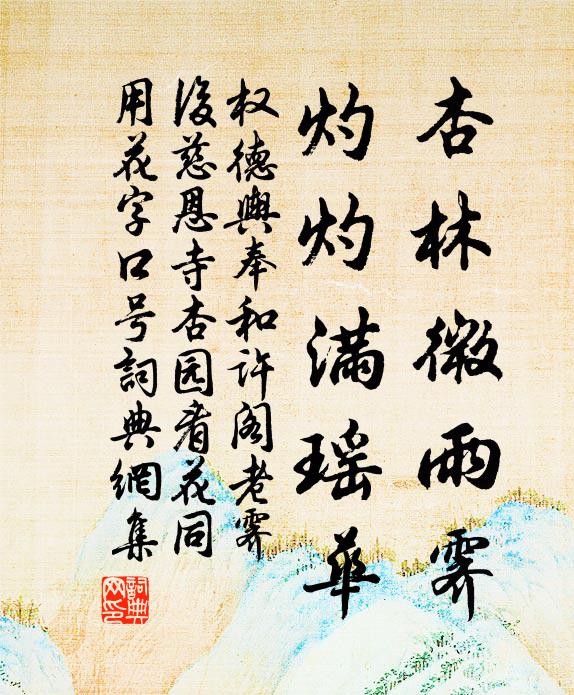 杏林微雨霁
灼灼满瑶华
权德舆奉和许阁老霁
后慈恩寺杏园看花同
用花字口号詞典網集
詞典